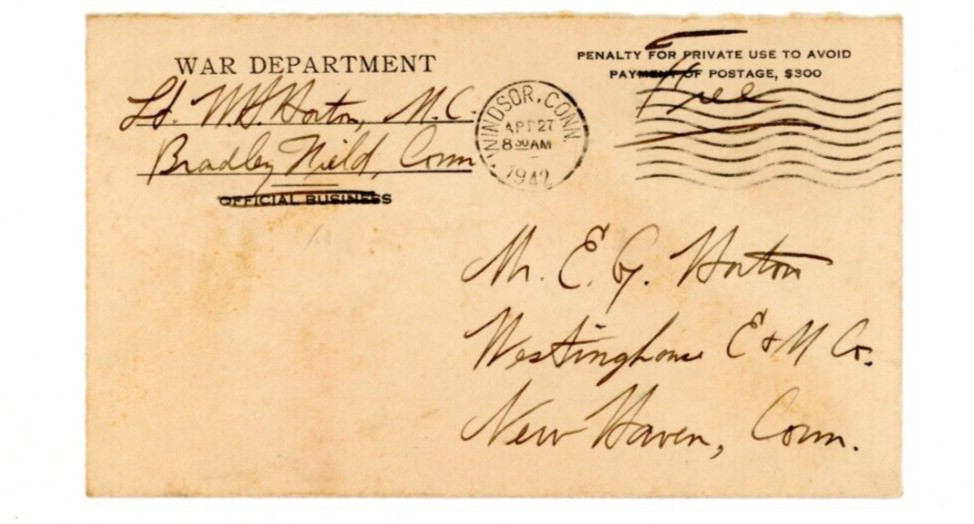 WAR DEPARTMENT
Lt. W. H. Horton, M.C.
Bradley Field, Conn
OFFICIAL BUSINESS
PENALTY FOR PRIVATE USE TO AVOID
PAYMENT OF POSTAGE, $300
Free
WINDSOR, CONN.
APR 27
8 30 AM
1942
Mr. E. G. Horton
Westinghouse E & M Co.
New Haven, Conn.